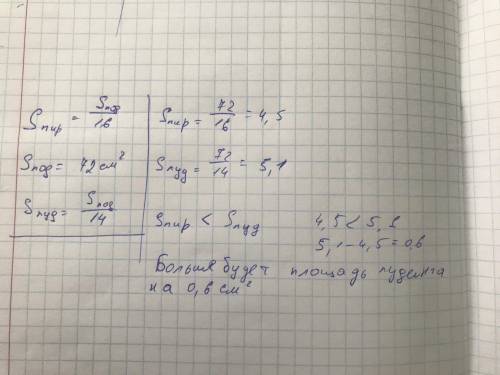 Sпир = Sпод/16
Sпод = 72 см²
Sпуд = Sпод/14
Sпир = 72/16 = 4,5
Sпуд = 72/14 = 5,1
Sпир < Sпуд
4,5 < 5,1
5,1 - 4,5 = 0,6
Больше будет площадь пудинга
на 0,6 см²